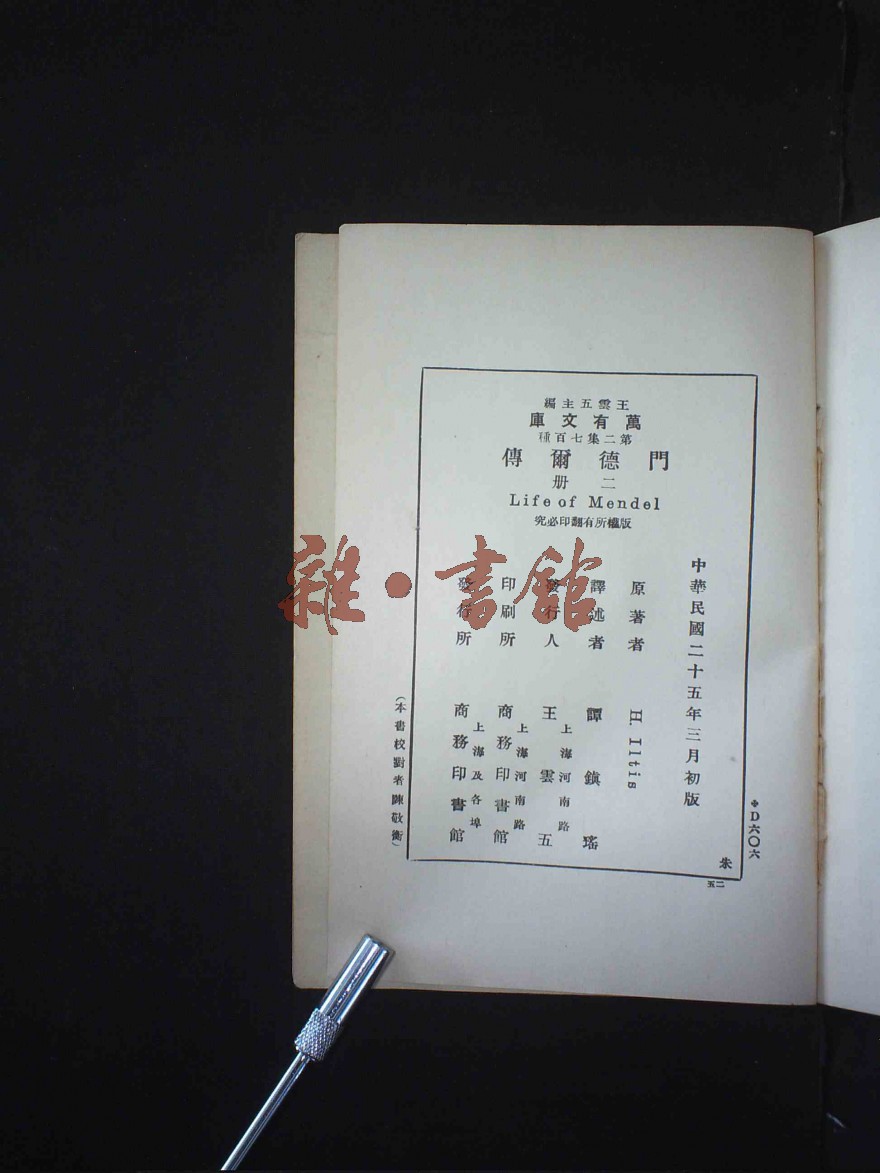 王雲五主編
萬有文庫
第二集七百種
門德爾傳
二册
Life of Mendel
版權所有翻印必究
中華民國二十五年三月初版
原著者 H. Iltis
譯述者 譚鎮瑤
發行人 王雲五
上海河南路
印刷所 商務印書館
上海河南路
發行所 商務印書館
上海及各埠
(本書校對者陳敬衡)
❖D六〇六
朱
五二
雜·書館